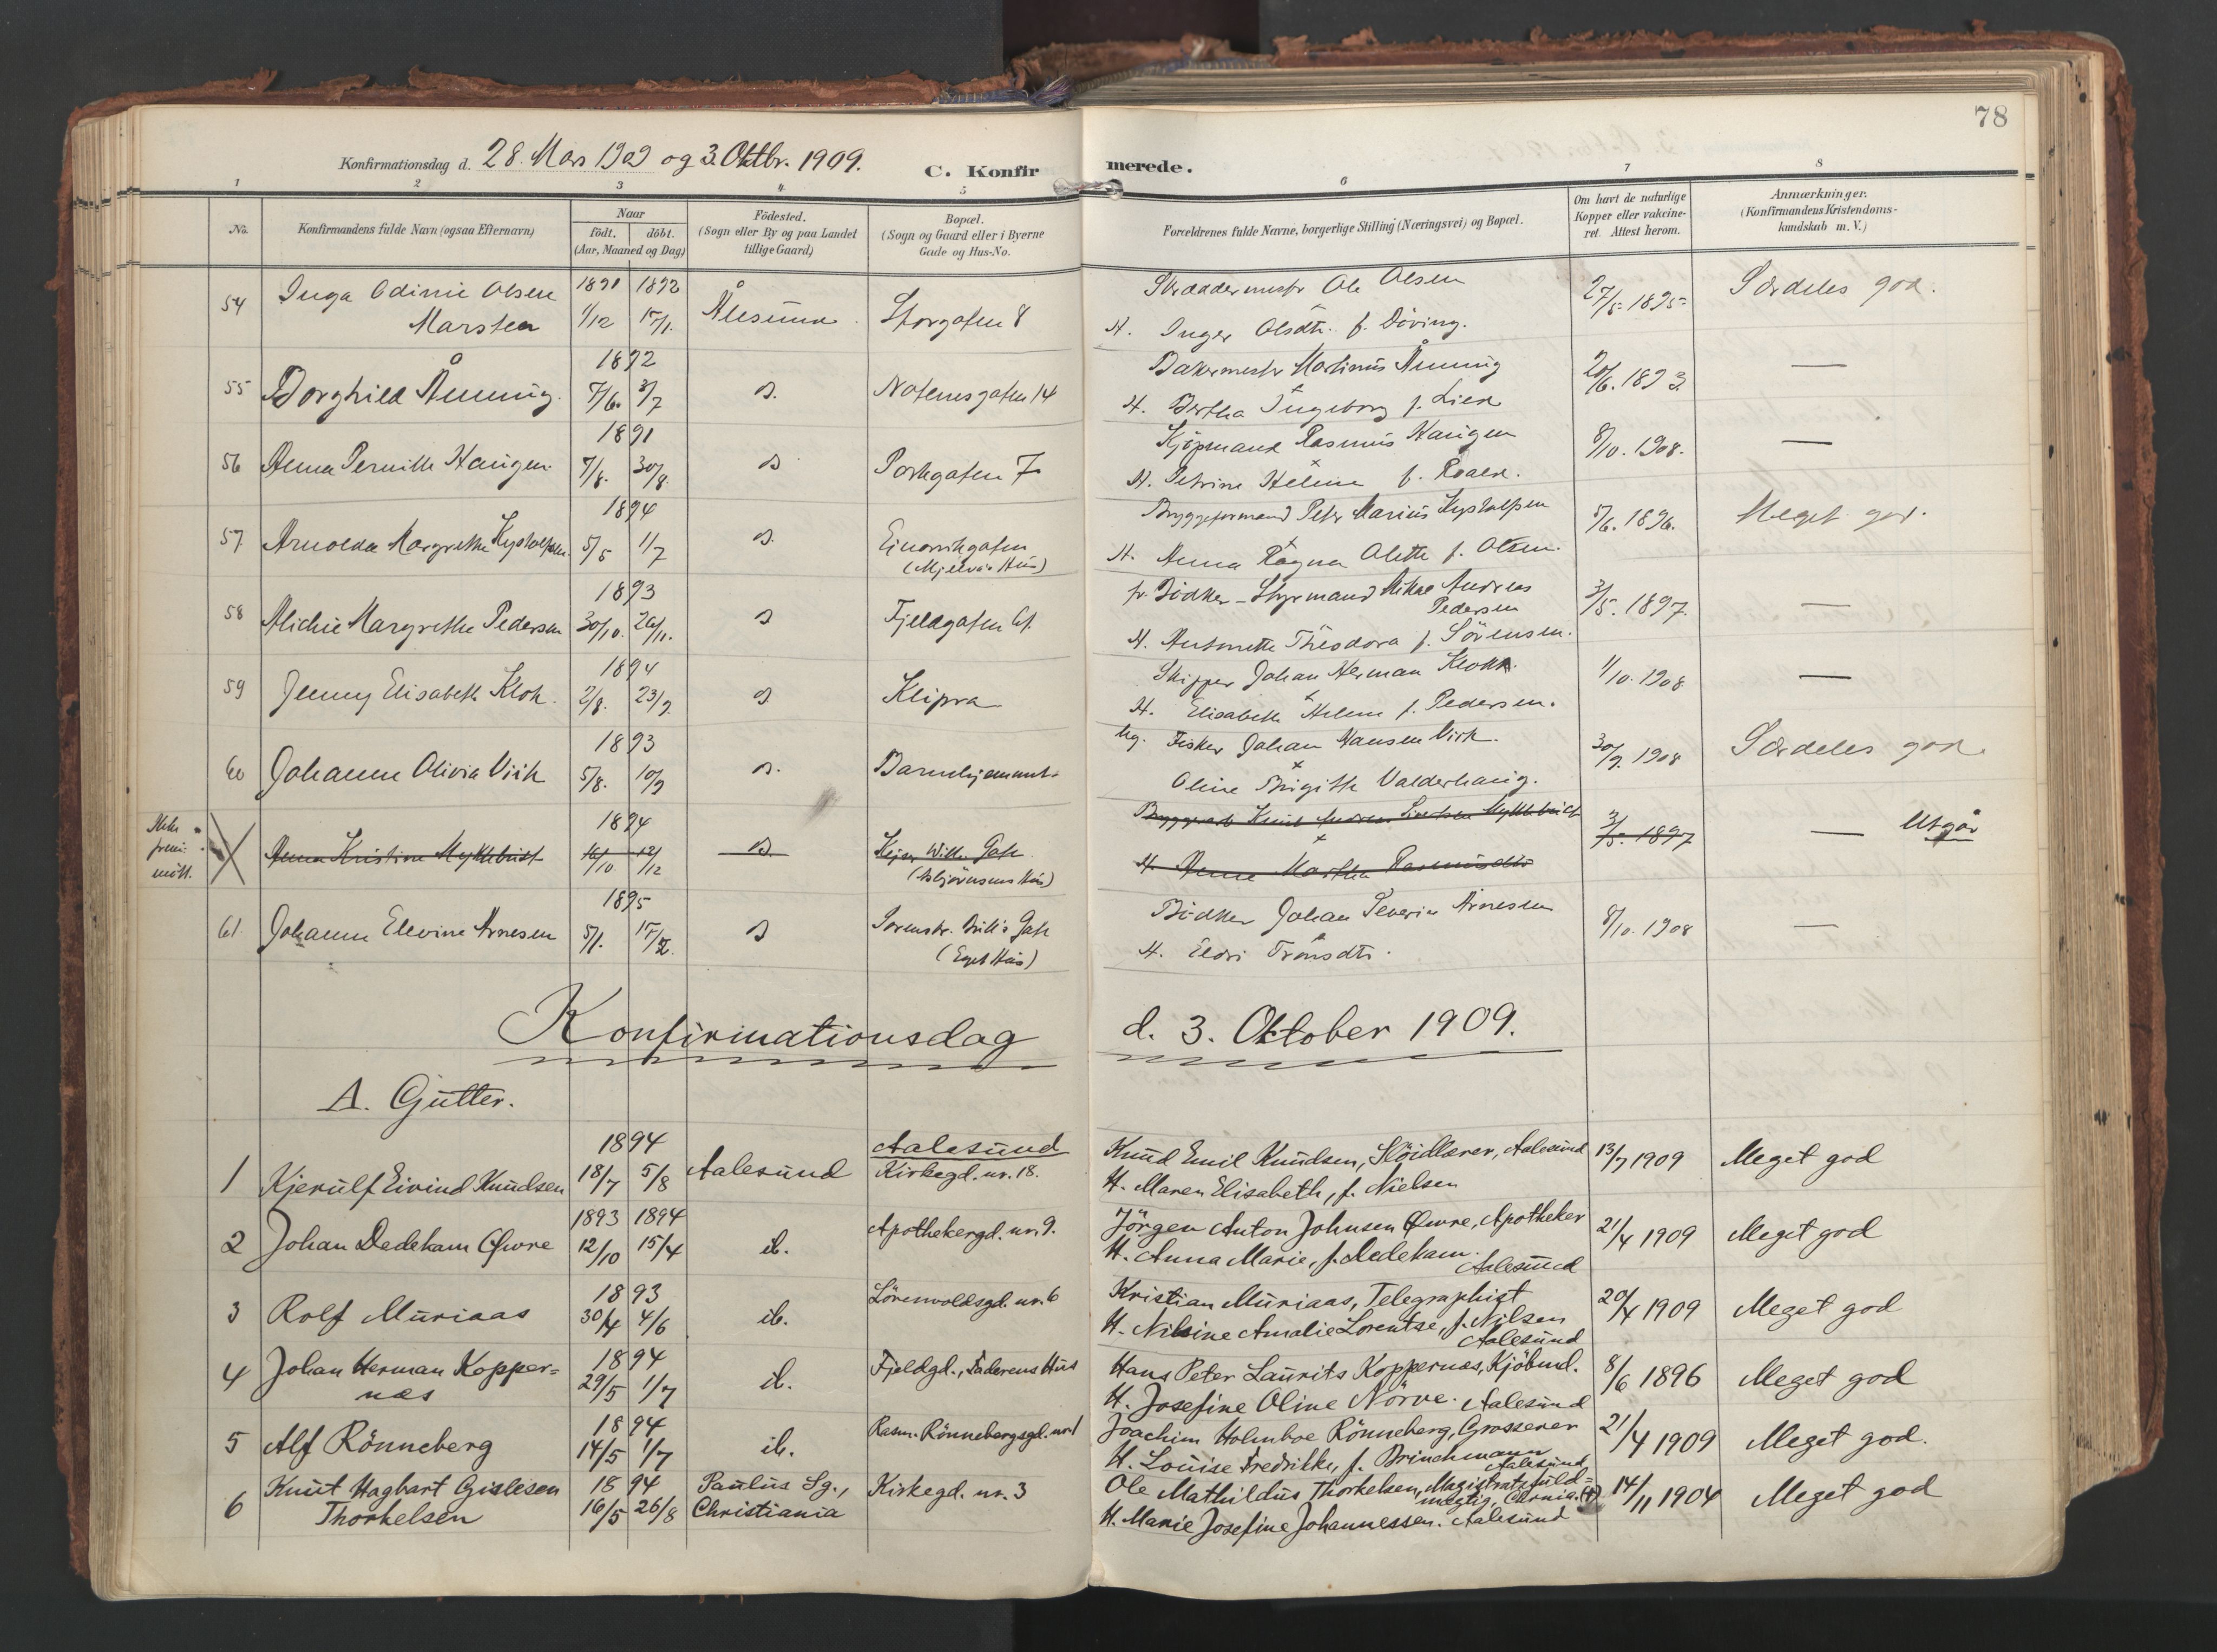 78
Konfirmationsdag d. 28. Mars 1909 og 3. Oktbr. 1909.
C. Konfirmerede.
1 2 3 4 5 6 7 8
No.
Konfirmandens fulde Navn (ogsaa Efternavn)
Naar
født. døbt.
(Aar, Maaned og Dag)
Fødested.
(Sogn eller By og paa Landet
tillige Gaard)
Bopæl.
(Sogn og Gaard eller i Byerne
Gade og Hus-No.
Forældrenes fulde Navne, borgerlige Stilling (Næringsvei) og Bopæl.
Om havt de naturlige
Kopper eller vakcine-
ret. Attest herom.
Anmærkninger.
(Konfirmandens Kristendoms-
kundskab m. V.)
54 Inga Odinie Olsen
Marsten
1891 1892
1/12 17/1.
Ålesund
Storgaten 8
Skræddermestr Ole Olsen
H. Inger Olsdtr. f. Døving.
27/5 1895
Særdeles god.
55 Borghild Ånning.
1892
7/6. 3/7
Notenesgaten 14
Bakermestr Martinus Ånning
H. Bertha Ingeborg f. Lied
20/6. 1893
—
56 Anna Pernille Haugen.
1891
7/8. 30/8.
Parkgaten 7
Kjøpmand Rasmus Haugen
H. Petrine Heline f. Roald.
8/10. 1908.
—
57 Arnolda Margrethe Kystolfsen.
1894
5/5 1/7
Einarvikgaten
(Mjelva's Hus)
Bryggeformand Petr Marius Kystolfsen
H. Anna Ragna Olette f. Olsen.
5/6. 1896.
Meget god.
58 Alichie Margrethe Pedersen
1893
30/10. 26/11.
Fjeldgaten 61.
fr. Bødker - Styrmand Mikae Andreas
Pedersen
H. Antonette Theodora f. Sörensen.
3/5. 1897.
—
59 Jenny Elisabeth Klok.
1894
2/8. 23/9.
Klipra
Skipper Johan Herman Klokk.
H. Elisabeth Helene f. Pedersen.
1/10. 1908
—
60 Johanne Olivia Vik
1893
5/8. 10/9
Barnehjemmet
Ug. Fisker Johan Hansen Vik.
Oline Brigitte Valderhaug.
30/9. 1908
Særdeles god.
Ikke
frem-
mött.
Anna Kristine Myklebust
1894
16/10 12/12
Keiser Wilh. Gate
(Asbjörnsens Hus)
Bryggearb. Knut Andreas Sivertsen Myklebust
H. Anne Martha Rasmusdtr
3/5. 1897
— Utgår
61. Johanne Elevine Arnesen
1895
5/1. 17/2.
Sorenskr. Bull's Gate
(Eget Hus)
Bödker Johan Severin Arnesen
H. Eldri Trönsdtr.
8/10. 1908
—
Konfirmationsdag d. 3. Oktober 1909.
A. Gutter.
1 Kjerulf Eivind Knudsen
1894
18/7 5/8
Aalesund
Aalesund
Kirkegd. nr. 18.
Knud Emil Knudsen, Slöidlærer, Aalesund
H. Maren Elisabeth, f. Nielsen
13/7 1909
Meget god
2 Johan Dedekam Qwre
1893 1894
12/10 15/4
ib.
Apothekergd. nr. 9.
Jörgen Anton Johnsen Qwre, Apotheker
H. Anna Marie, f. Dedekam.
Aalesund
21/4 1909
Meget god
3 Rolf Muriaas
1893
30/4 4/6
ib.
Lörenvoldsgd. nr. 6
Kristian Muriaas, Telegraphist
H. Nilsine Amalie Lorentse, f. Nilsen
Aalesund
20/4 1909
Meget god
4 Johan Herman Kopper=
næs
1894
29/5 1/7
ib.
Fjeldgd., Faderens Hus
Hans Peter Laurits Koppernæs, Kjöbmd.
H. Josefine Oline Nörve. Aalesund
8/6 1896
Meget god
5 Alf Rönneberg
1894
14/5 1/7
ib.
Rasm. Rönnebergsgd. nr 1
Joachim Holmboe Rönneberg, Grosserer
H. Louise Fredrikke, f. Brinchmann
Aalesund
21/4 1909
Meget god.
6 Knut Hagbart Gislesen
Thorkelsen
1894
16/5 26/8
Paulus Sg.,
Christiania
Kirkegd. nr. 3
Ole Mathildus Thorkelsen, Magistratsfuld=
mægtig, Chrnia. (†)
H. Marie Josefine Johannessen. Aalesund
14/11 1904
Meget god